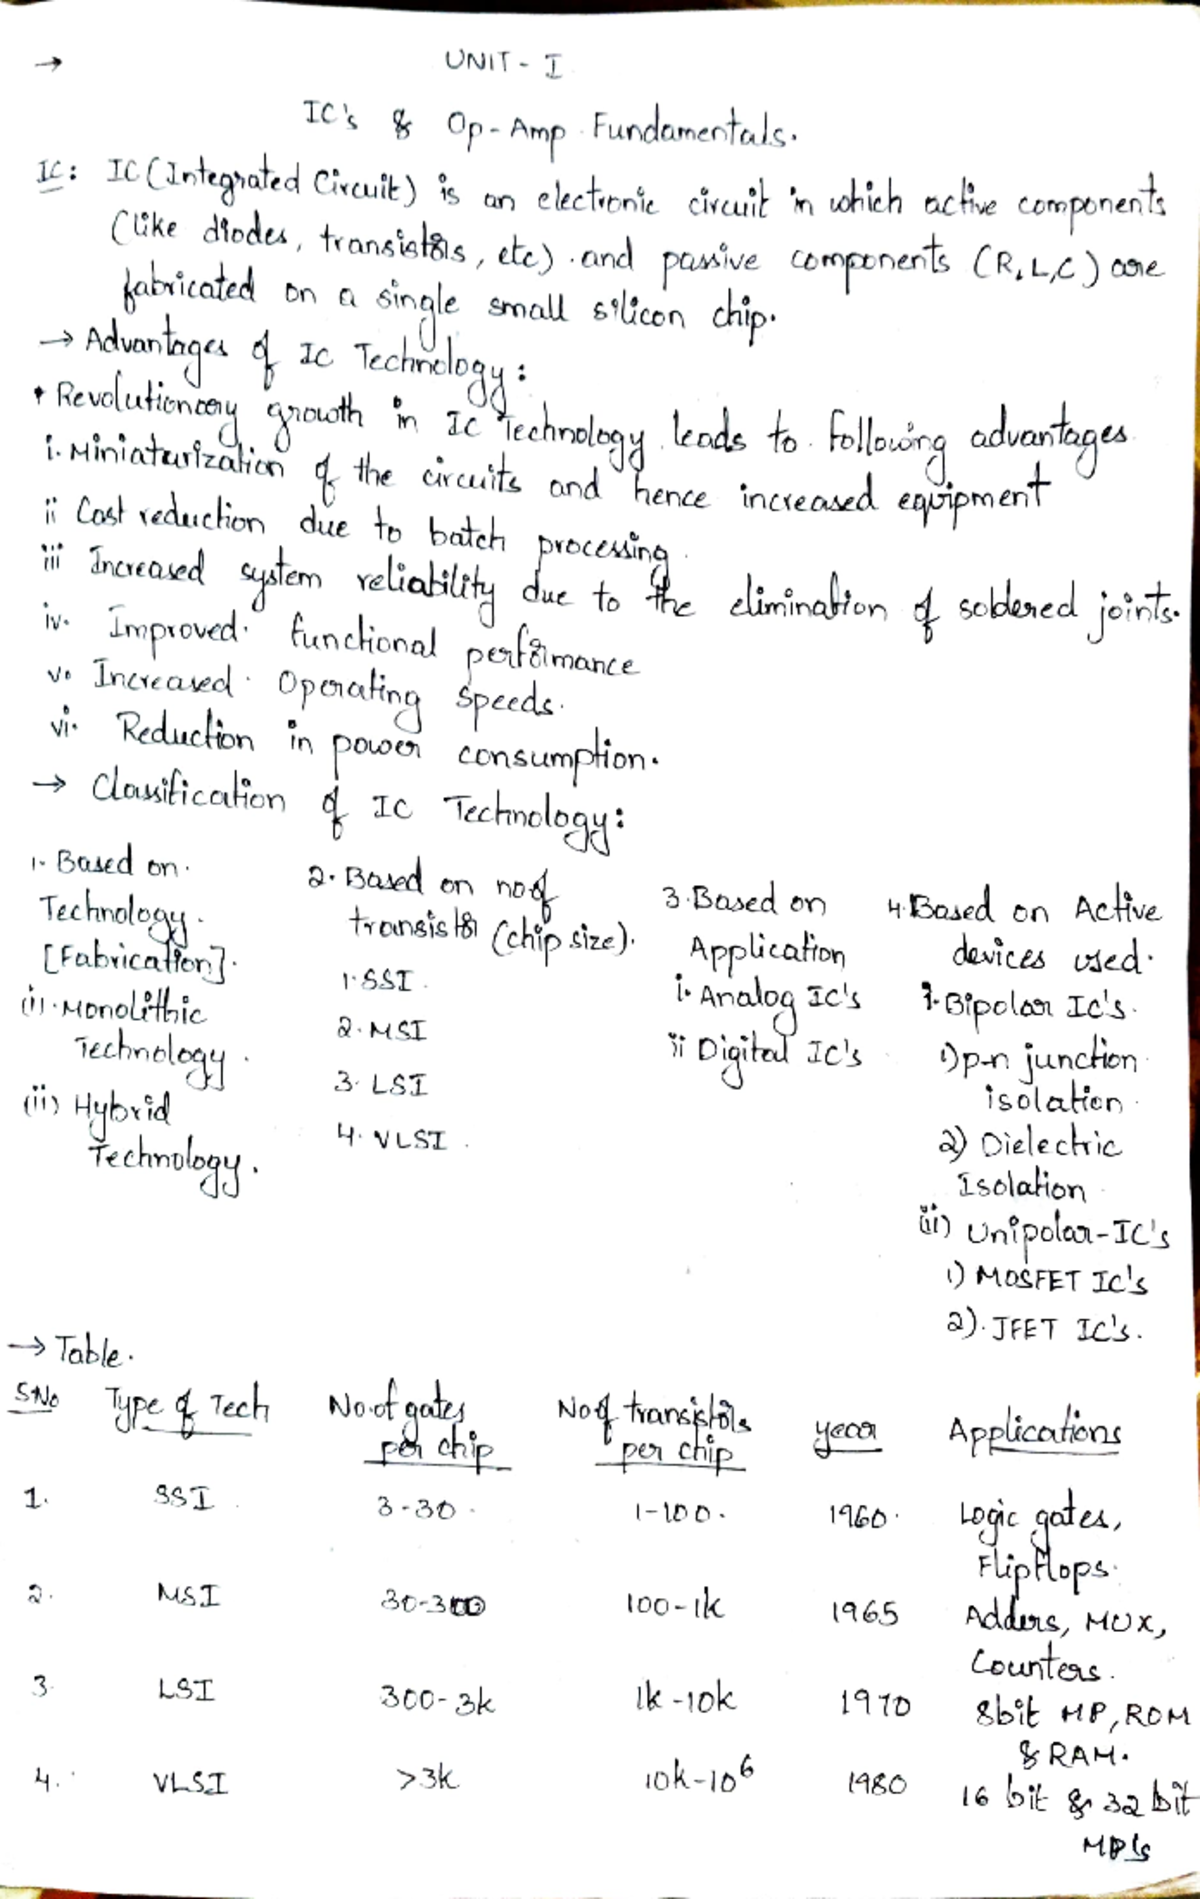 → UNIT - I
IC's & Op-Amp Fundamentals.
IC: IC (Integrated Circuit) is an electronic circuit in which active components
(like diodes, transistors, etc) and passive components (R,L,C) are
fabricated on a single small silicon chip.
→ Advantages of IC Technology:
* Revolutionary growth in IC Technology leads to following advantages
i. Miniaturization of the circuits and hence increased equipment
ii Cost reduction due to batch processing.
iii Increased system reliability due to the elimination of soldered joints.
iv. Improved functional performance
v. Increased Operating speeds.
vi. Reduction in power consumption.
→ Classification of IC Technology:
1. Based on
Technology.
[Fabrication].
(i). Monolithic
Technology.
(ii) Hybrid
Technology.
2. Based on no.of
transistor (chip size).
1. SSI.
2. MSI
3. LSI
4. VLSI.
3. Based on
Application
i. Analog IC's
ii Digital IC's
4. Based on Active
devices used.
i. Bipolar IC's.
1) p-n junction
isolation.
2) Dielectric
Isolation
(ii) Unipolar-IC's
1) MOSFET IC's
2). JFET IC's.
→ Table.
S.No Type of Tech No.of gates per chip No of transistors per chip year Applications
1. SSI 3-30. 1-100. 1960. Logic gates,
Flipflops.
2. MSI 30-300 100-1k 1965 Adders, MUX,
Counters.
3. LSI 300-3k 1k-10k 1970 8bit MP, ROM
& RAM.
4. VLSI >3k 10k-10⁶ 1980 16 bit & 32 bit
MP's